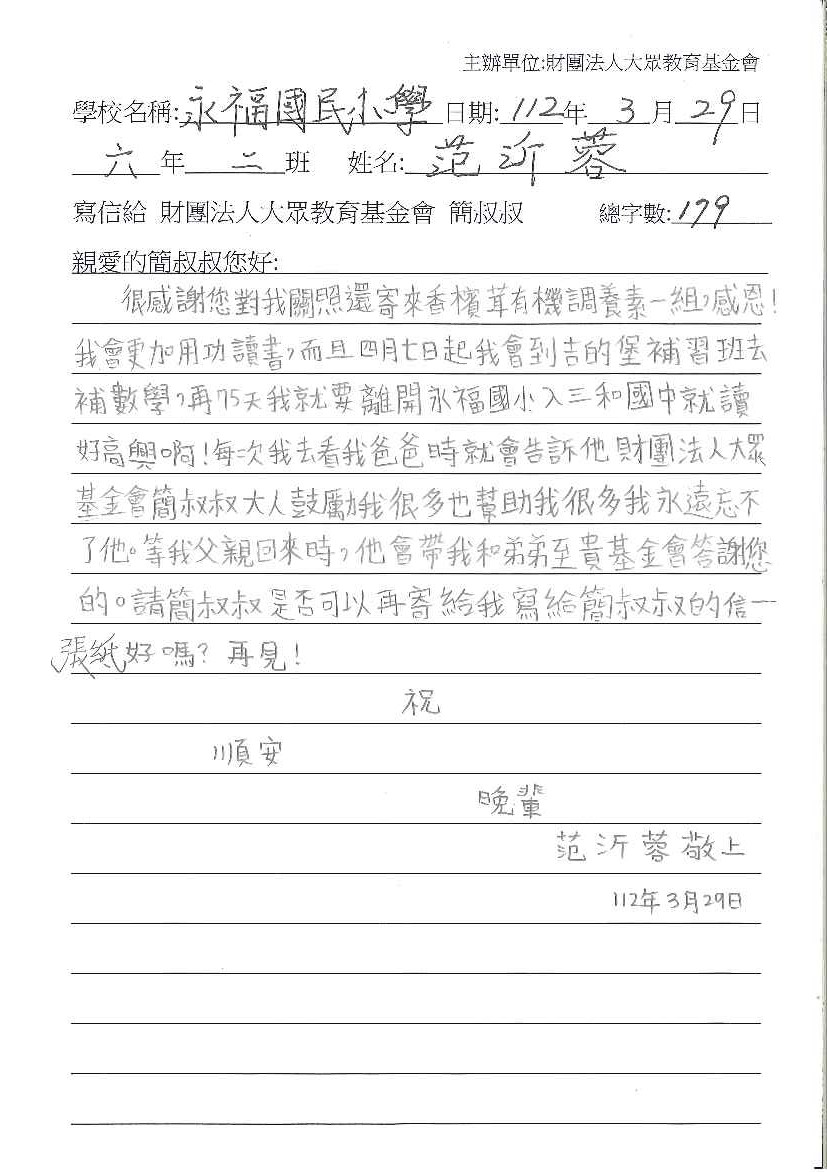 主辦單位:財團法人大眾教育基金會
學校名稱:永福國民小學 日期:112年 3 月 29 日
六 年 二 班 姓名: 范沂蓉
寫信給 財團法人大眾教育基金會 簡叔叔 總字數:179
親愛的簡叔叔您好:
很感謝您對我關照還寄來香檳茸有機調養素一組,感恩!
我會更加用功讀書,而且四月七日起我會到吉的堡補習班去
補數學,再75天我就要離開永福國小入三和國中就讀
好高興啊!每次我去看我爸爸時就會告訴他財團法人大眾
基金會簡叔叔大人鼓勵我很多也幫助我很多我永遠忘不
了他。等我父親回來時,他會帶我和弟弟至貴基金會答謝您
的。請簡叔叔是否可以再寄給我寫給簡叔叔的信一
張紙好嗎?再見!
祝
順安
晚輩
范沂蓉敬上
112年3月29日